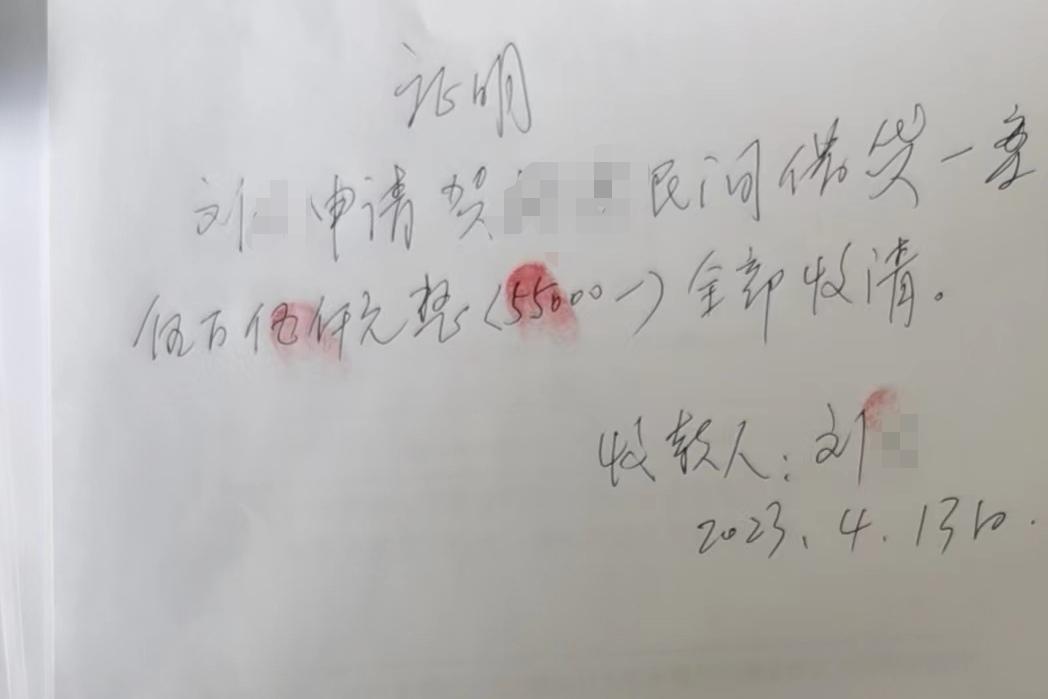 证明
刘 申请贺 民间借贷一案
伍万伍仟元整(55000一)全部收清。
收款人:刘
2023、4.13日.